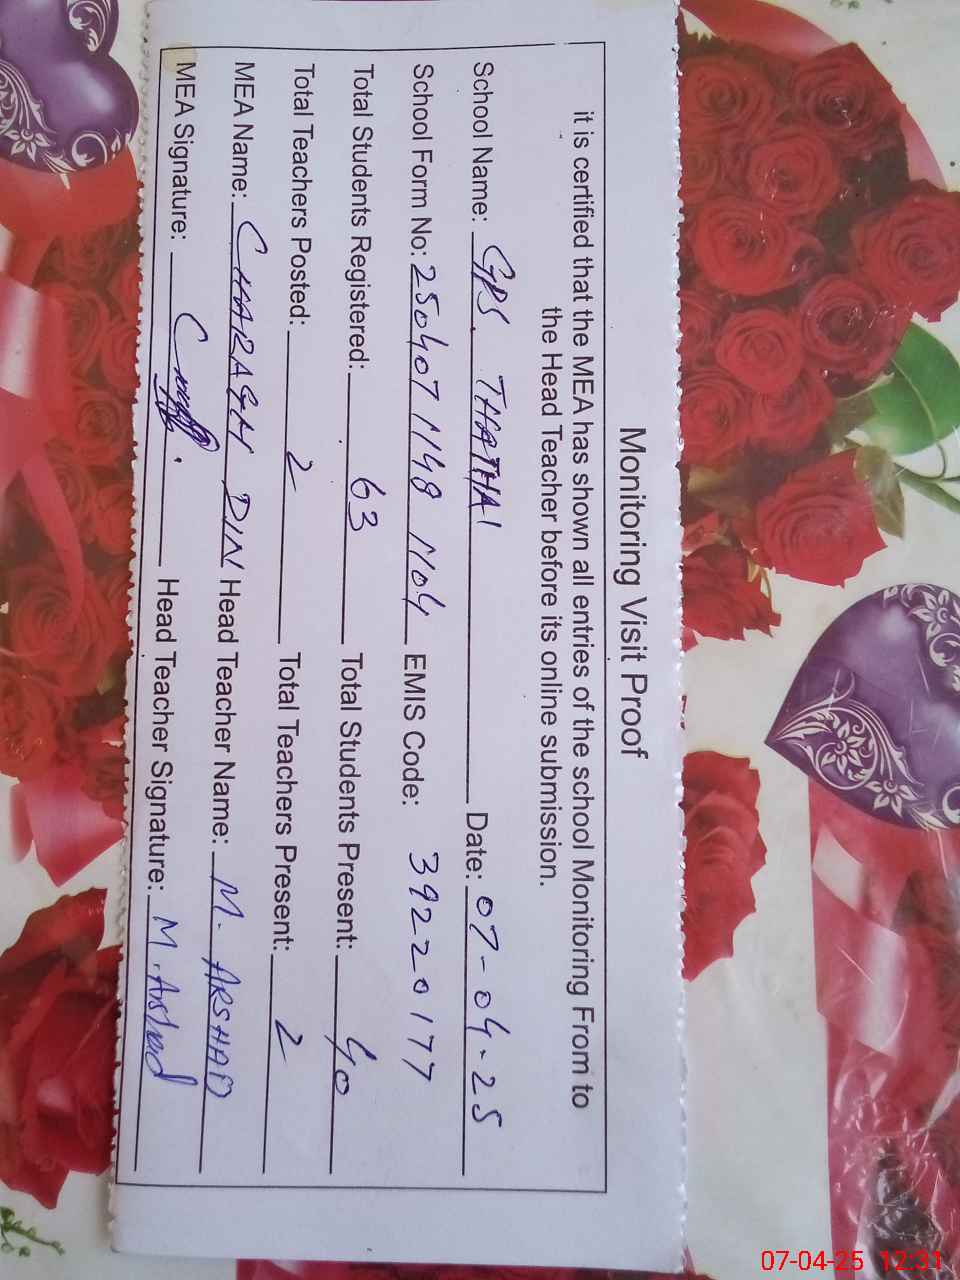 Monitoring Visit Proof
it is certified that the MEA has shown all entries of the school Monitoring From to
the Head Teacher before its online submission.
School Name: GPS. THATHAI Date: 07-04-25
School Form No: 250407 1148 1104 EMIS Code: 39220177
Total Students Registered: 63 Total Students Present: 40
Total Teachers Posted: 2 Total Teachers Present: 2
MEA Name: CHARAGH DIN Head Teacher Name: M. ARSHAD
MEA Signature: Head Teacher Signature: M. Arshad
07-04-25 12:31